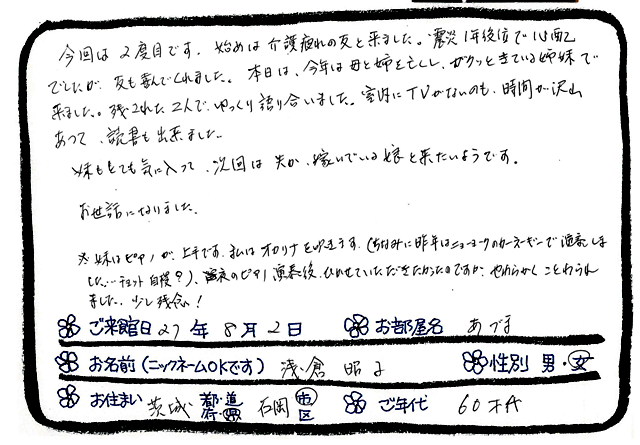 今回は2度目です。始めは介護疲れの友と来ました。震災1年後位で心配
でしたが、友も喜んでくれました。本日は、今年は母と姉を亡くし、ガクッときている姉妹で
来ました。残された2人で、ゆっくり語り合いました。室内にTVがないのも、時間が沢山
あって、読書も出来ました。
妹もとても気に入って、次回は夫か、嫁いでいる娘と来たいようです。
お世話になりました。
※妹はピアノが上手です。私はオカリナを吹きます。(ちなみに昨年はニューヨークのカーネギーで演奏しま
した…チョット自慢?)、のピアノ演奏後、ひかせていただきたかったのですが、やわらかくことわられ
ました。少し残念!
ご来館日 27年8月2日 お部屋名 あづま
お名前(ニックネームOKです) 浅倉 昭子 性別 男・女
お住まい 茨城 都・道・府・県 石岡 市区 ご年代 60才代